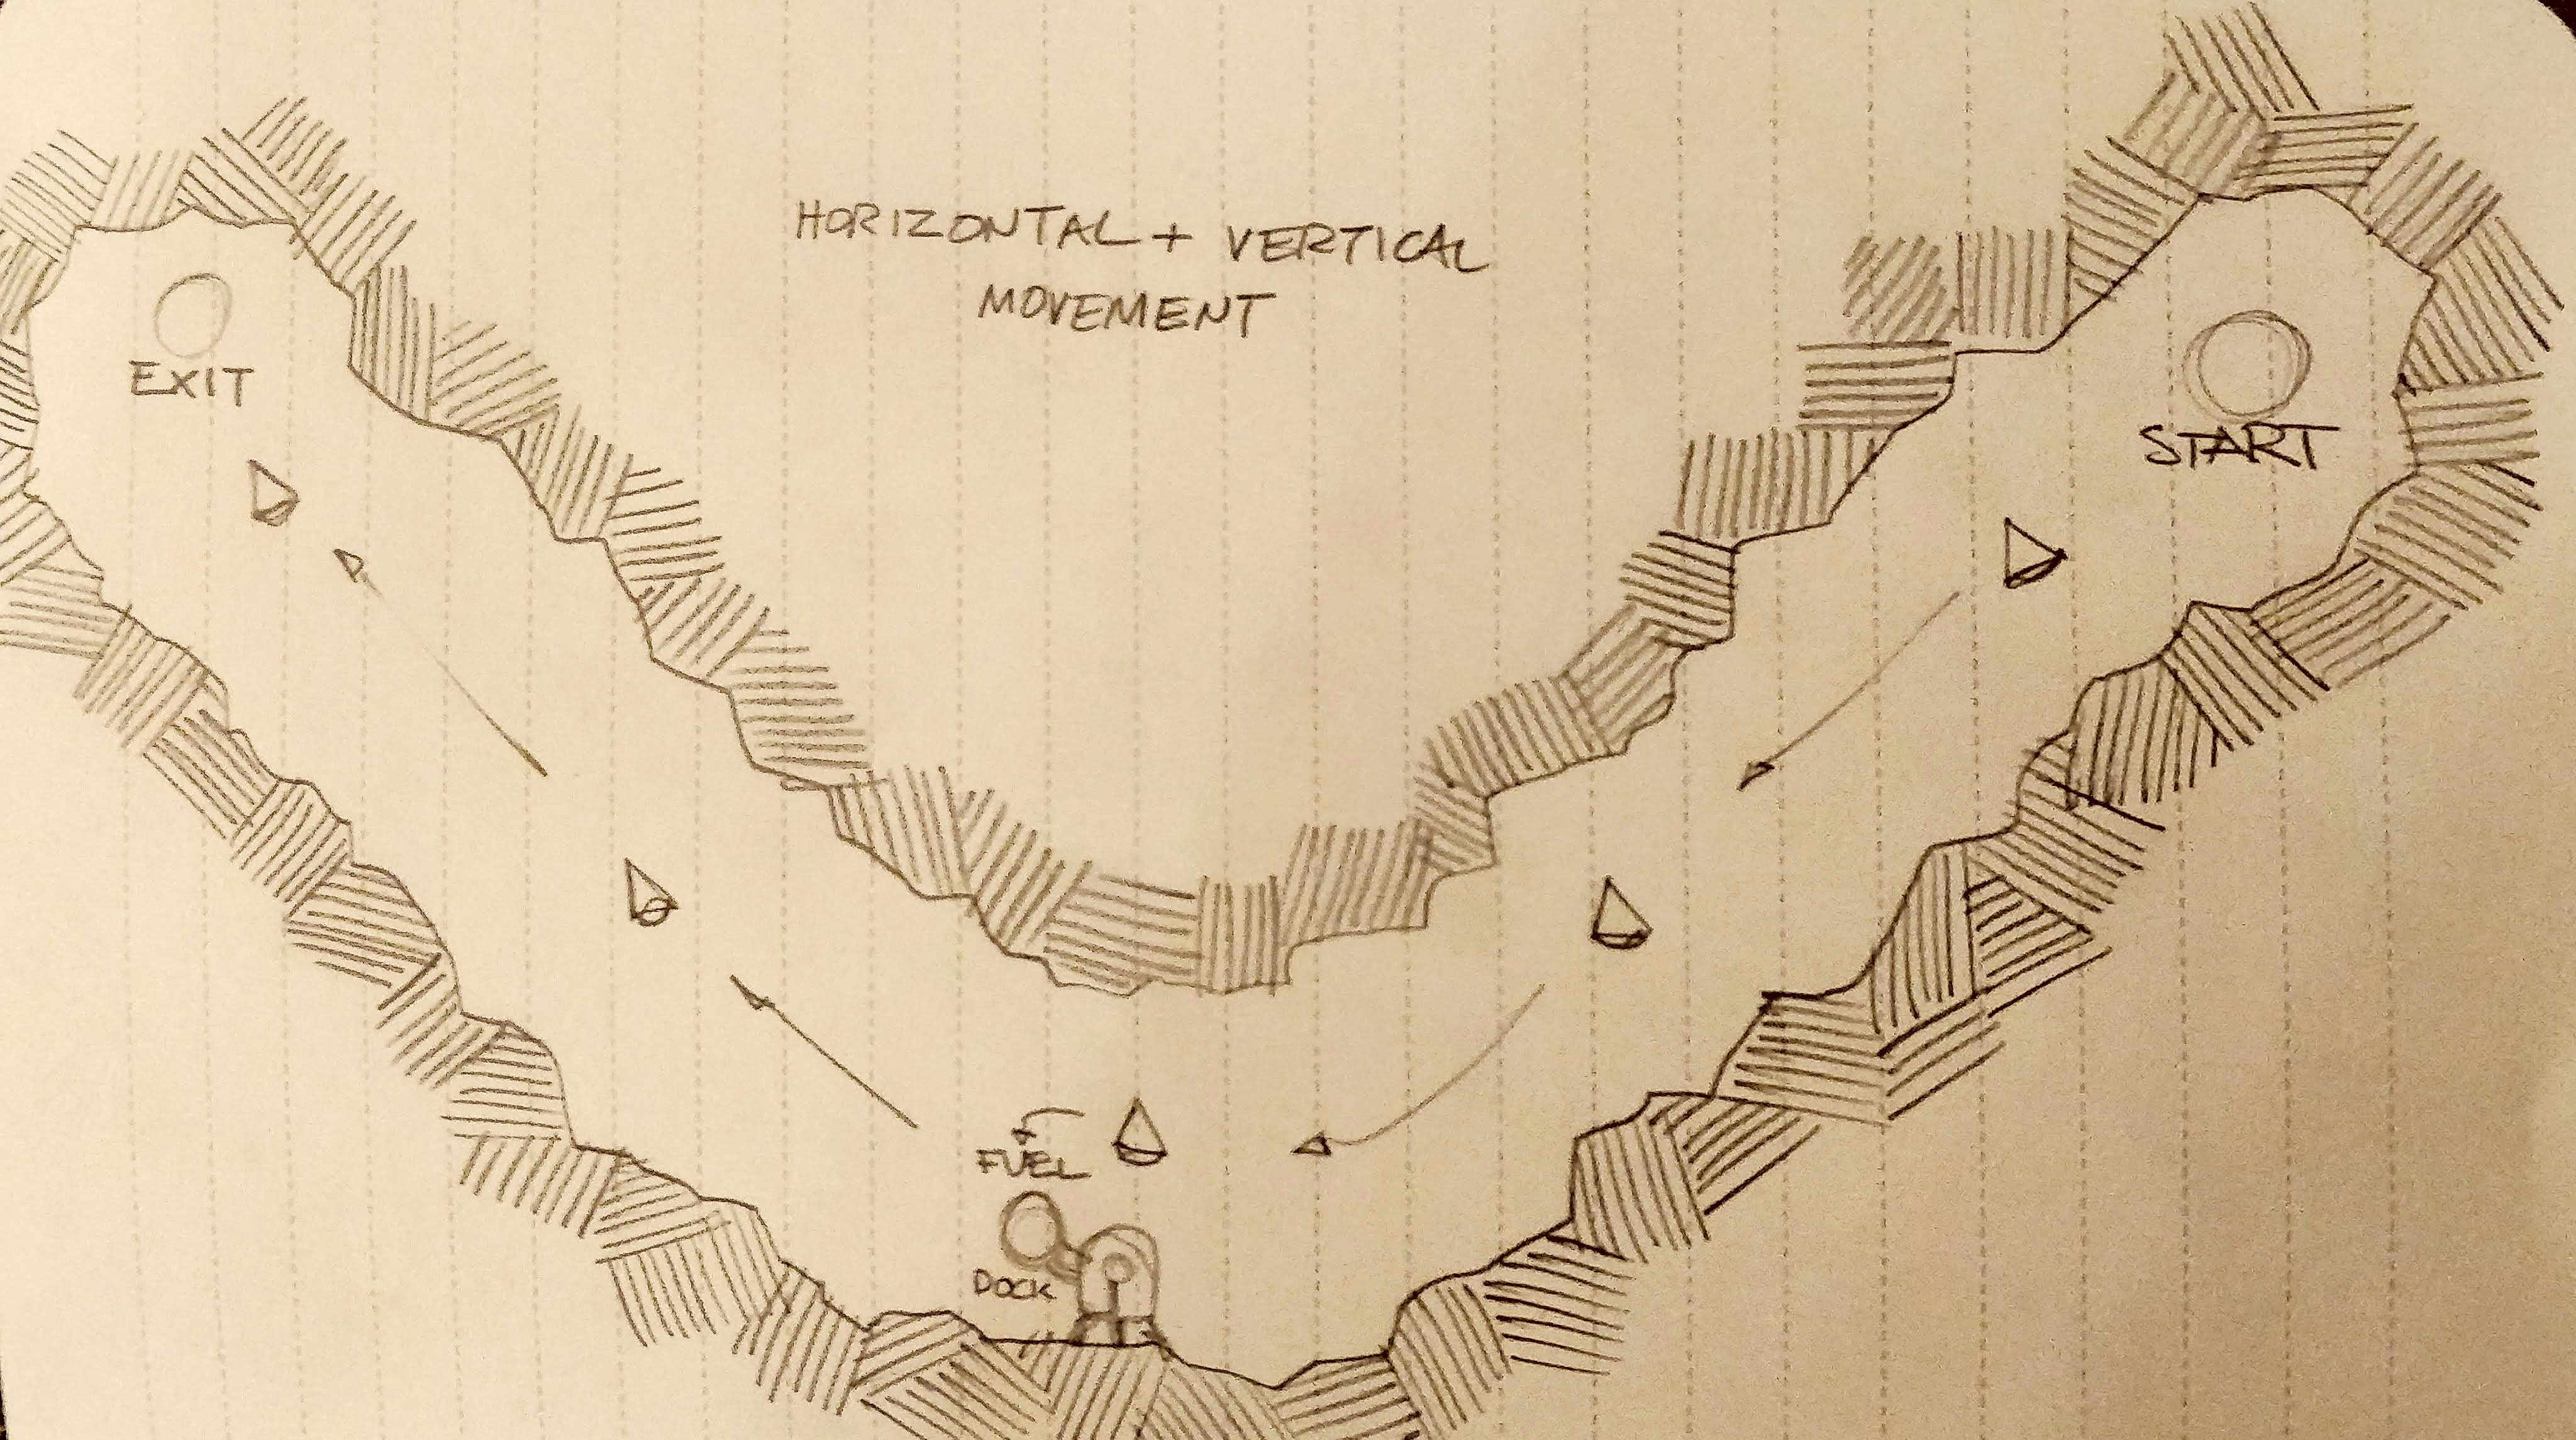 HORIZONTAL + VERTICAL
MOVEMENT
EXIT
START
FUEL
DOCK